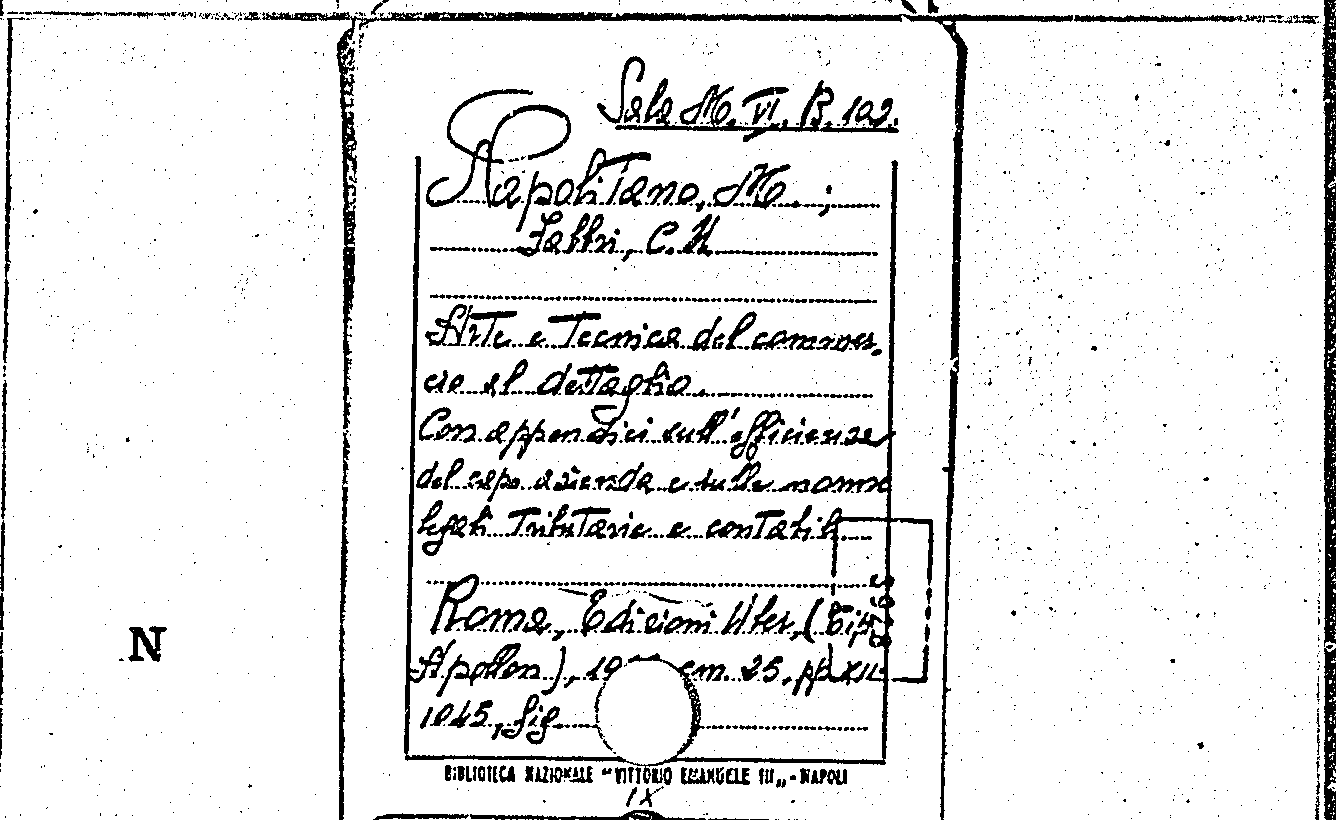 Sala M. VI. B. 102.
Napolitano, M. ;
Fabbri, C. U.
Arte e Tecnica del commer-
cio al dettaglio.
Con appendici sull'efficienza
del capo azienda e sulle norme
legali Tributarie e contabili
Roma, Edizioni Uter, (Tip.
Apollon), 19 cm. 25, pp. XII-
1045, fig
BIBLIOTECA NAZIONALE "VITTORIO EMANUELE III„ - NAPOLI
IX
N